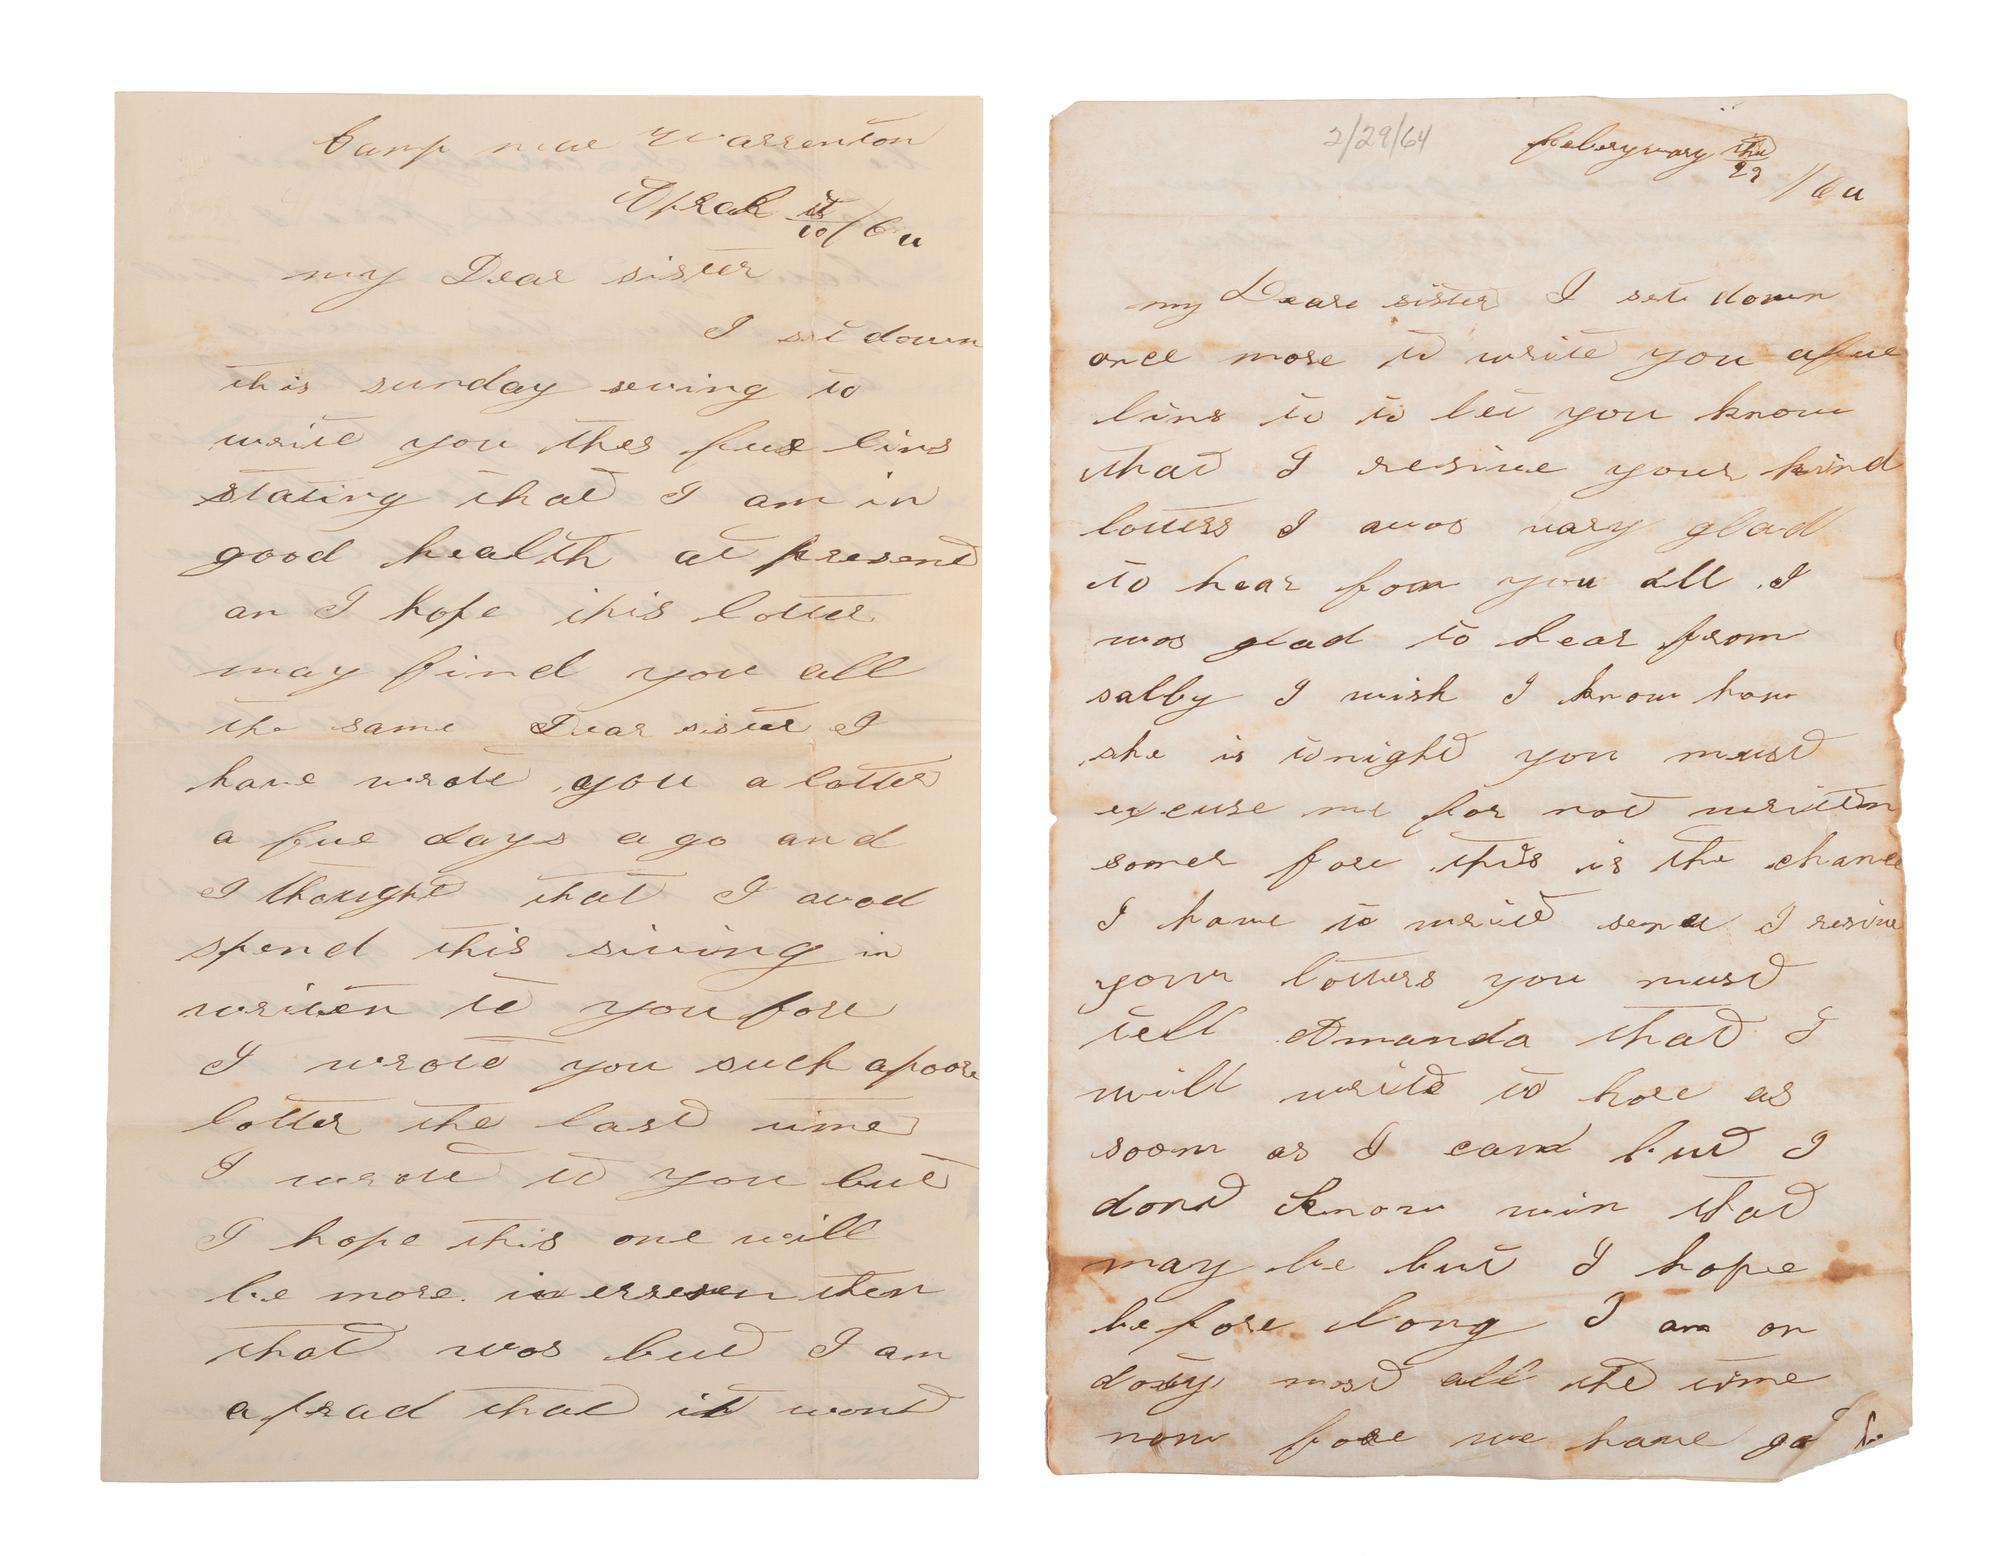 Camp near Warrenton
Aprael 10 /64
my Dear sister
I set down
this sunday eeving to
write you thes fue lins
stating that I am in
good health at present
an I hope this lotter
may find you all
the same Dear sister I
have wrote you a lotter
a fue days ago and
I thought that I wod
spend this eiving in
writen to you fore
I wrote you such a poore
lotter the last time
I wrote to you but
I hope this one will
be more then
that was but I am
afrad that it wont
2/29/64
the 29 /64
my Deare sister I set down
once more to write you afue
lins to to let you know
that I resive your kind
lotters I was vary glad
to hear from you all I
was glad to hear from
salby I wish I know how
she is tonight you must
excuse me for not writen
somer fore this is the chance
I have to write I resive
your lotters you must
tell Amanda that I
will write to hore as
soom as I can but I
dont know win that
may be but I hope
before long I am on
doty most all the time
now fore we have got